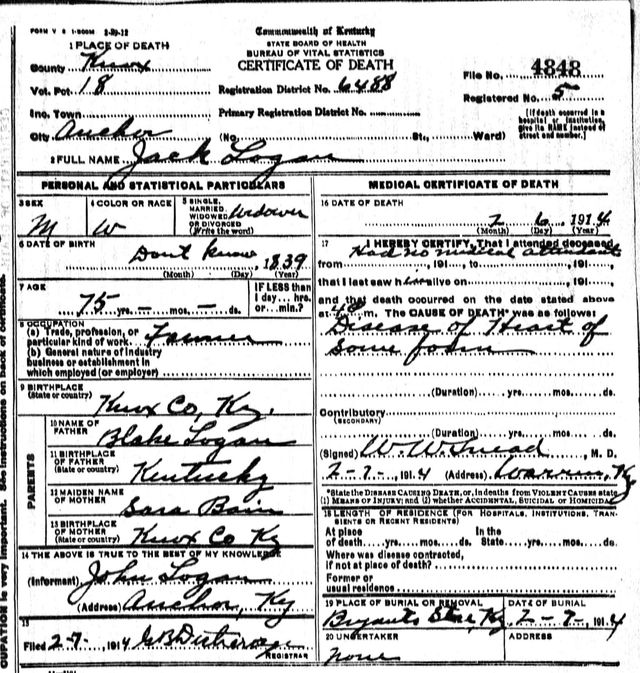 FORM V S 1-500M 2-29-12
Commonwealth of Kentucky
STATE BOARD OF HEALTH
BUREAU OF VITAL STATISTICS
CERTIFICATE OF DEATH
1 PLACE OF DEATH
County Knox
Vot. Pct 18
Inc. Town
City Anchor
Registration District No. 6488
Primary Registration District No.
(No. St., Ward)
File No. 4848
Registered No. 5
[If death occurred in a
hospital or institution,
give its NAME instead of
street and number.]
2 FULL NAME Jack Logan
PERSONAL AND STATISTICAL PARTICULARS
3 SEX M
4 COLOR OR RACE W
5 SINGLE, MARRIED, WIDOWED OR DIVORCED (Write the word) Widower
6 DATE OF BIRTH Dont Know, 1839
(Month) (Day) (Year)
7 AGE
75 yrs. – mos. – ds.
IF LESS than
1 day... hrs.
or... min.?
8 OCCUPATION
(a) Trade, profession, or
particular kind of work Farmer
(b) General nature of industry
business or establishment in
which employed (or employer)
9 BIRTHPLACE
(State or country) Knox Co, Ky.
PARENTS
10 NAME OF
FATHER Blake Logan
11 BIRTHPLACE
OF FATHER
(State or country) Kentucky
12 MAIDEN NAME
OF MOTHER Sara Bain
13 BIRTHPLACE
OF MOTHER
(State or country) Knox Co Ky
14 THE ABOVE IS TRUE TO THE BEST OF MY KNOWLEDGE
(Informant) John Logan
(Address) Anchor, Ky
15
Filed 2-7-, 1914
REGISTRAR
MEDICAL CERTIFICATE OF DEATH
16 DATE OF DEATH
2 6, 1914
(Month) (Day) (Year)
17 I HEREBY CERTIFY, That I attended deceased
Had no medical attendants
from, 191, to, 191,
that I last saw h alive on, 191,
and that death occurred on the date stated above
at m. The CAUSE OF DEATH* was as follows:
Disease of Heart of
Some
(Duration) yrs. mos. ds.
Contributory
(SECONDARY)
(Duration) yrs. mos. ds.
(Signed) W. W. Snead, M. D.
2-7-, 1914 (Address) Warren, Ky
*State the DISEASE CAUSING DEATH, or, in deaths from VIOLENT CAUSES state
(1) MEANS OF INJURY; and (2) whether ACCIDENTAL, SUICIDAL or HOMICIDAL
18 LENGTH OF RESIDENCE (FOR HOSPITALS, INSTITUTIONS, TRAN-
SIENTS OR RECENT RESIDENTS)
At place In the
of death yrs. mos. ds. State yrs. mos. ds.
Where was disease contracted,
if not at place of death?
Former or
usual residence
19 PLACE OF BURIAL OR REMOVAL
Ky
DATE OF BURIAL
2-7-, 1914
20 UNDERTAKER
none
ADDRESS
CUPATION is very important. See instructions on back of certificate.